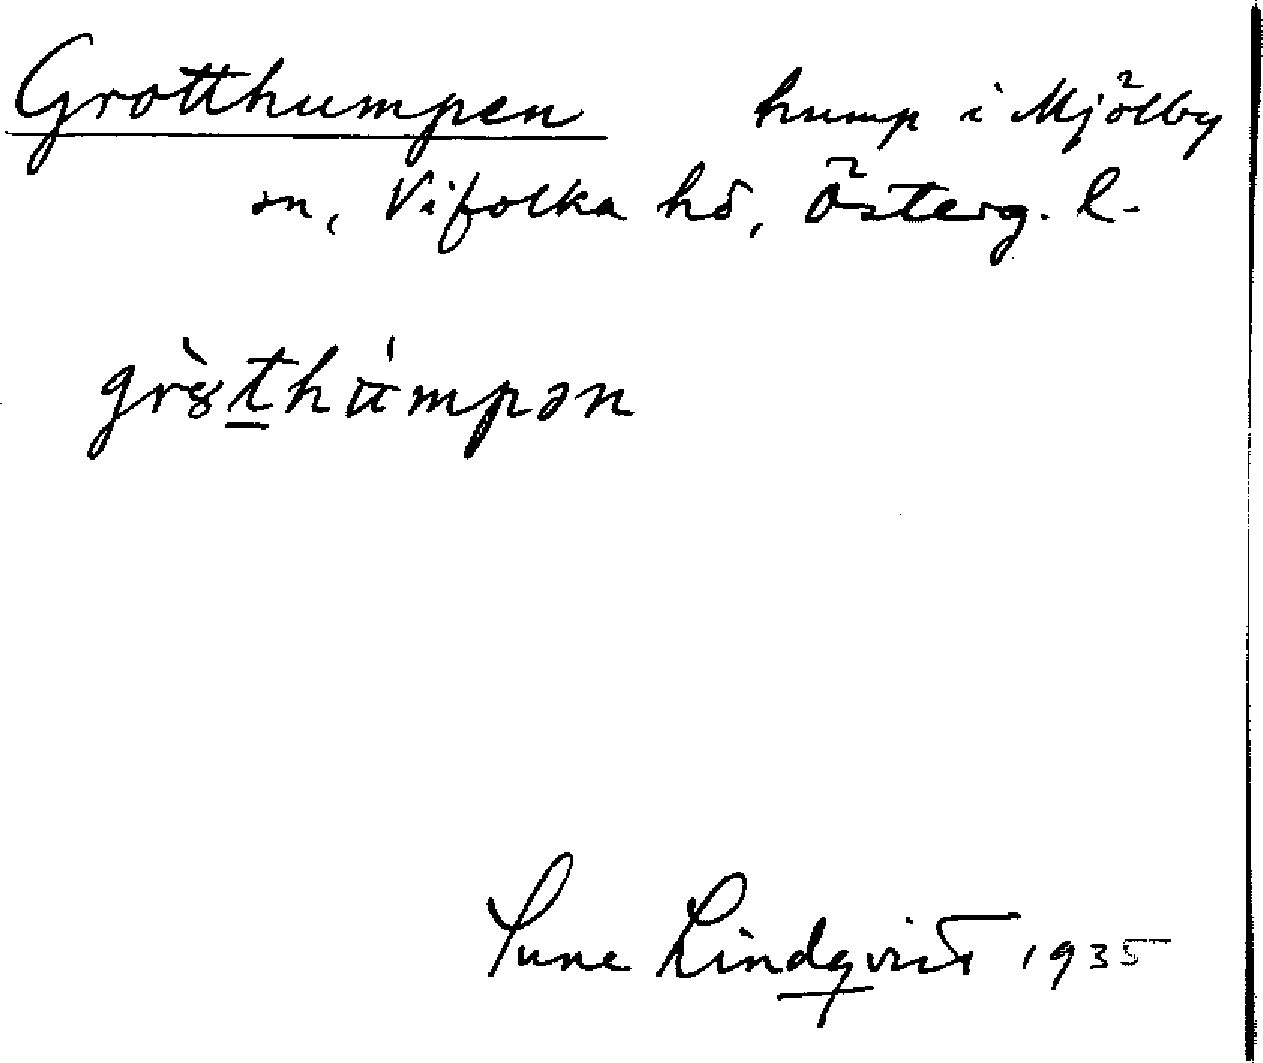 Grotthumpen hump i Mjölby
sn, Vifolka hd, Österg. l.
Sune Lindqvist 1935